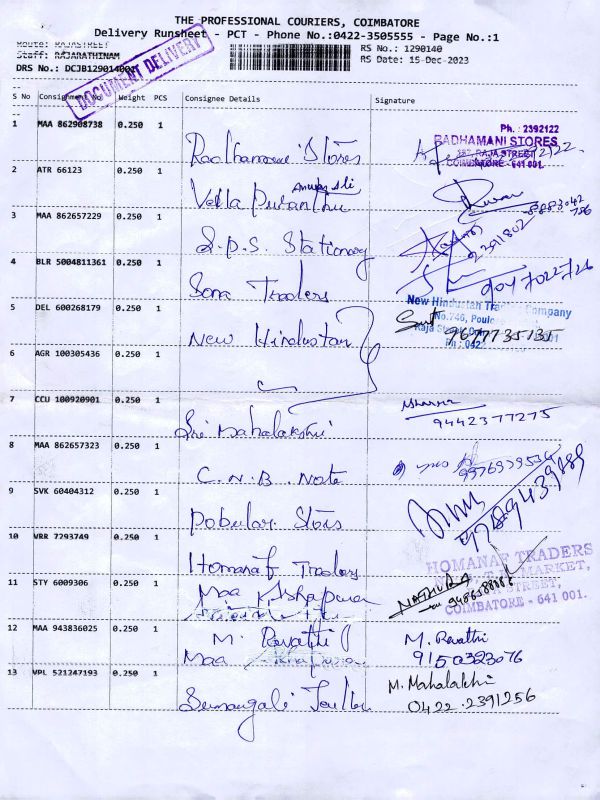 THE PROFESSIONAL COURIERS, COIMBATORE
Delivery Runsheet - PCT - Phone No.:0422-3505555 - Page No.:1
Route: RAJASTREET
Staff: RAJARATHINAM
RS No.: 1290140
DRS No.: DCJB129014000
RS Date: 15-Dec-2023
DOCUMENT DELIVERY
S No Consignment No Weight PCS Consignee Details Signature
1 MAA 862908738 0.250 1 Radhamani Stores
Ph.: 2392122
RADHAMANI STORES
RAJA STREET
COIMBATORE - 641 001.
2 ATR 66123 0.250 1 Vella
3 MAA 862657229 0.250 1 S.P.S. Stationary
4 BLR 5004811361 0.250 1 Sona Traders 9047022726
5 DEL 600268179 0.250 1 New Hindustan
New Hindustan Trading Company
No.746,
9677735135
6 AGR 100305436 0.250 1
7 CCU 100920901 0.250 1 Sri Mahalakshmi 9442377275
8 MAA 862657323 0.250 1 C.N.B. Note
9 SVK 60404312 0.250 1 Pobular Stors 9789439889
10 VRR 7293749 0.250 1 Homanaf Traders
HOMANAF TRADERS
MARKET,
STREET,
COIMBATORE - 641 001.
11 STY 6009306 0.250 1 Maa Ashapura
12 MAA 943836025 0.250 1 M. Revathi M. Revathi
Maa 9150323076
13 VPL 521247193 0.250 1 Sumangali M. Mahalakhi
0422.2391256